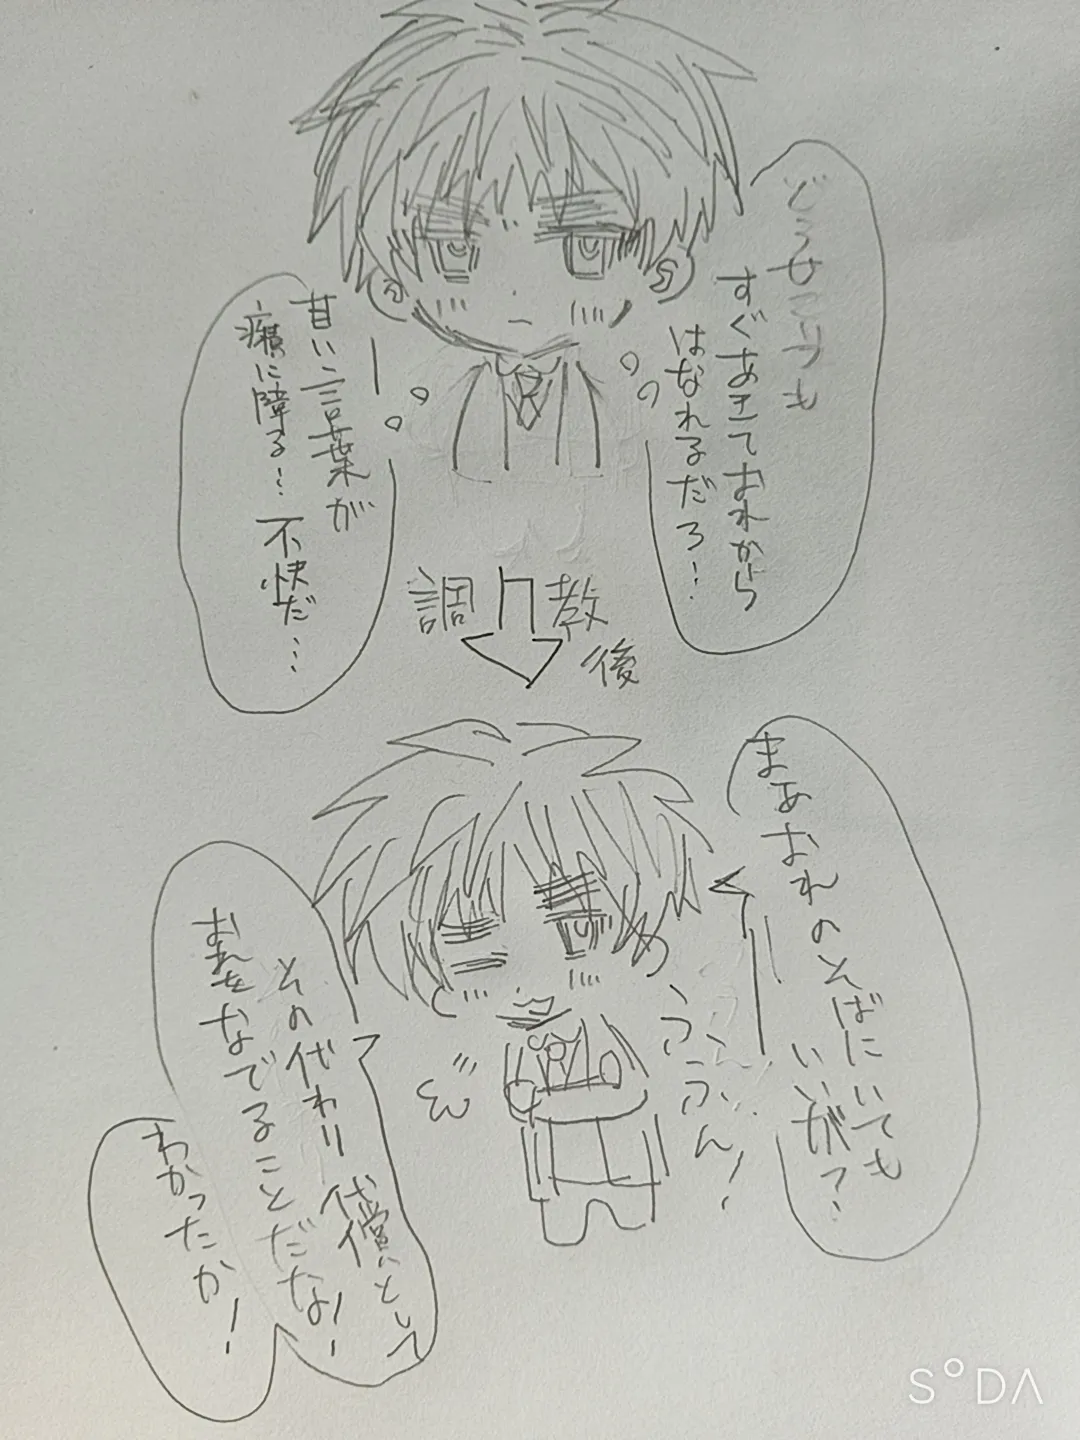 どうせこいつも
すぐあきておれから
はなれるだろ…
甘い言葉が
癪に障る…不快だ…
調教
後
まあおれのそばにいても
いいが?
ふふん
ふふん!
その代わり代償として
おれをなでることだな!
わかったか!
SODA